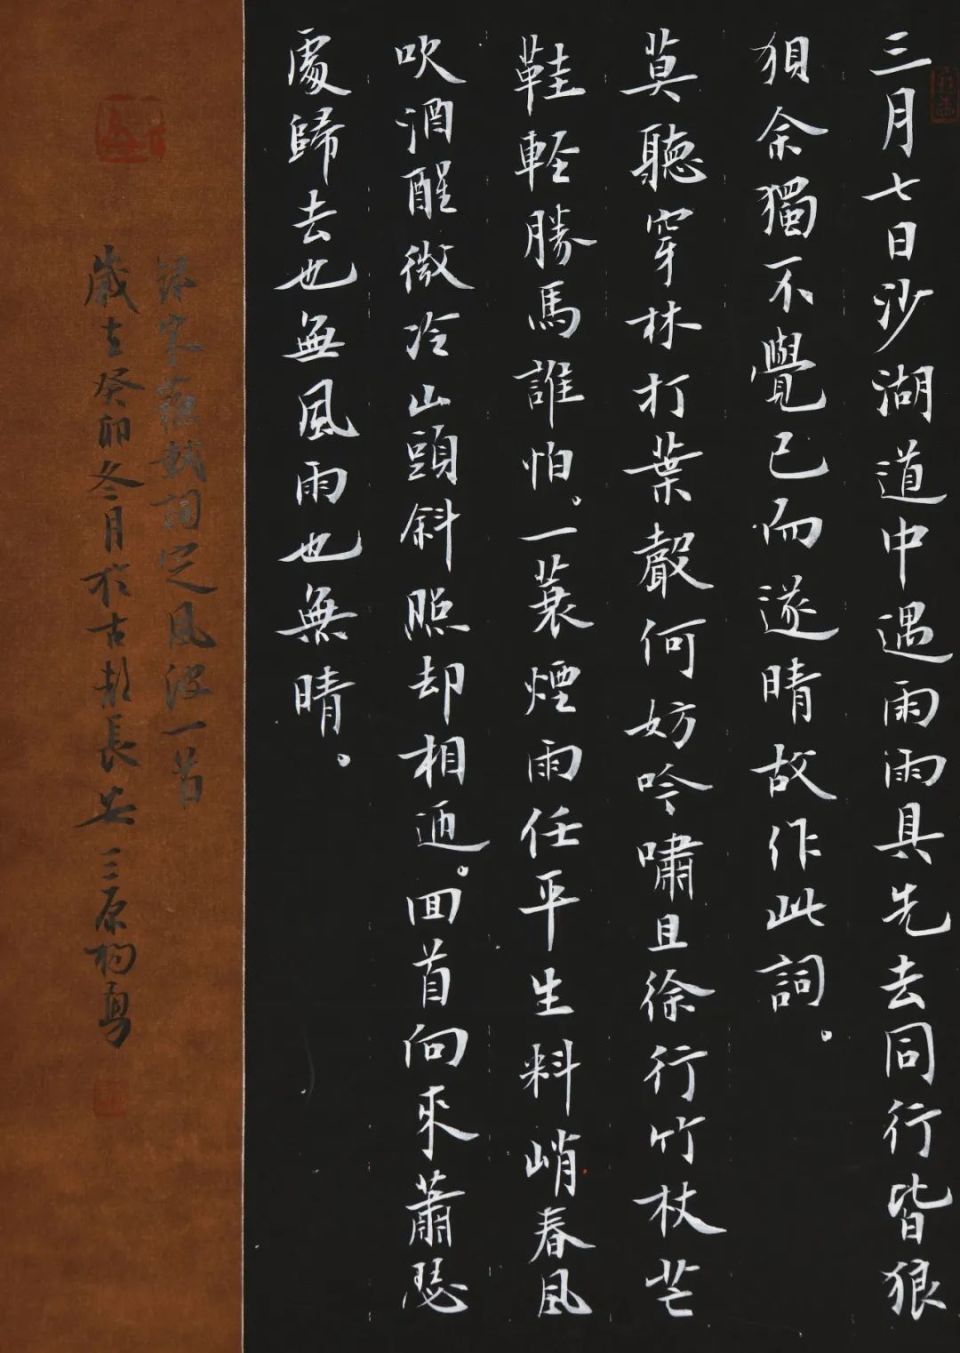 三月七日沙湖道中遇雨雨具先去同行皆狼
狽余獨不覺已而遂晴故作此詞。
莫聽穿林打葉聲何妨吟嘯且徐行竹杖芒
鞋輕勝馬誰怕。一蓑煙雨任平生料峭春風
吹酒醒微冷山頭斜照却相迎。回首向來蕭瑟
處歸去也無風雨也無晴。
宋蘇軾詞定風波一首
歲在癸卯冬月於古都長安三原勇